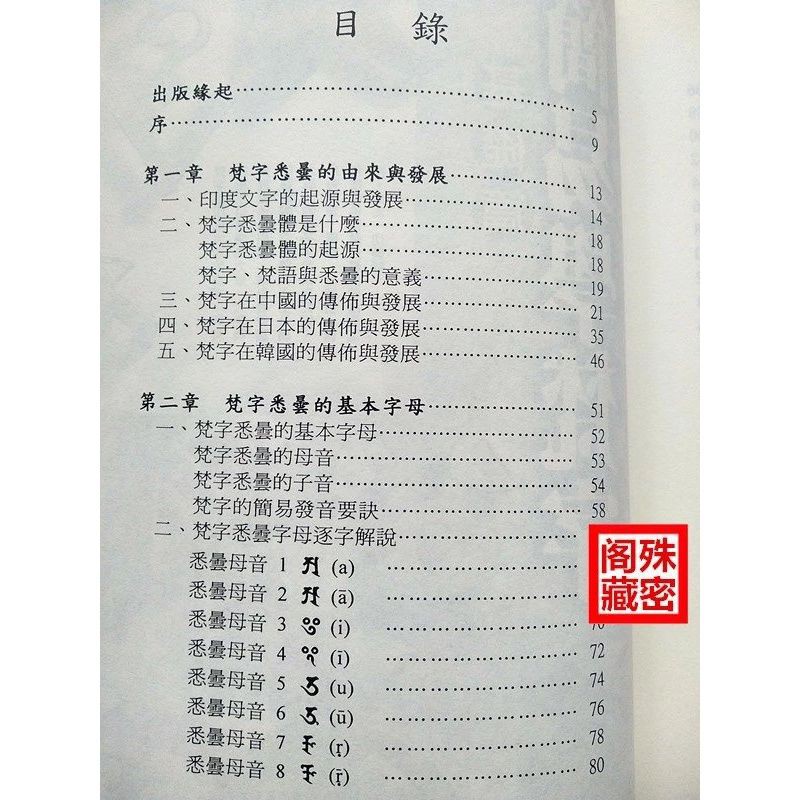 目錄
出版緣起………………………………………5
序………………………………………………9
第一章 梵字悉曇的由來與發展……………13
一、印度文字的起源與發展…………………14
二、梵字悉曇體是什麼………………………18
梵字悉曇體的起源……………………………18
梵字、梵語與悉曇的意義……………………19
三、梵字在中國的傳佈與發展………………21
四、梵字在日本的傳佈與發展………………35
五、梵字在韓國的傳佈與發展………………46
第二章 梵字悉曇的基本字母………………51
一、梵字悉曇的基本字母……………………52
梵字悉曇的母音………………………………53
梵字悉曇的子音………………………………54
梵字的簡易發音要訣…………………………58
二、梵字悉曇字母逐字解說…………………
悉曇母音 1 (a) ………………………
悉曇母音 2 (ā) ………………………
悉曇母音 3 (i) ………………………70
悉曇母音 4 (ī) ………………………72
悉曇母音 5 (u) ………………………74
悉曇母音 6 (ū) ………………………76
悉曇母音 7 (ṛ) ………………………78
悉曇母音 8 (ṝ) ………………………80
殊密
阁藏